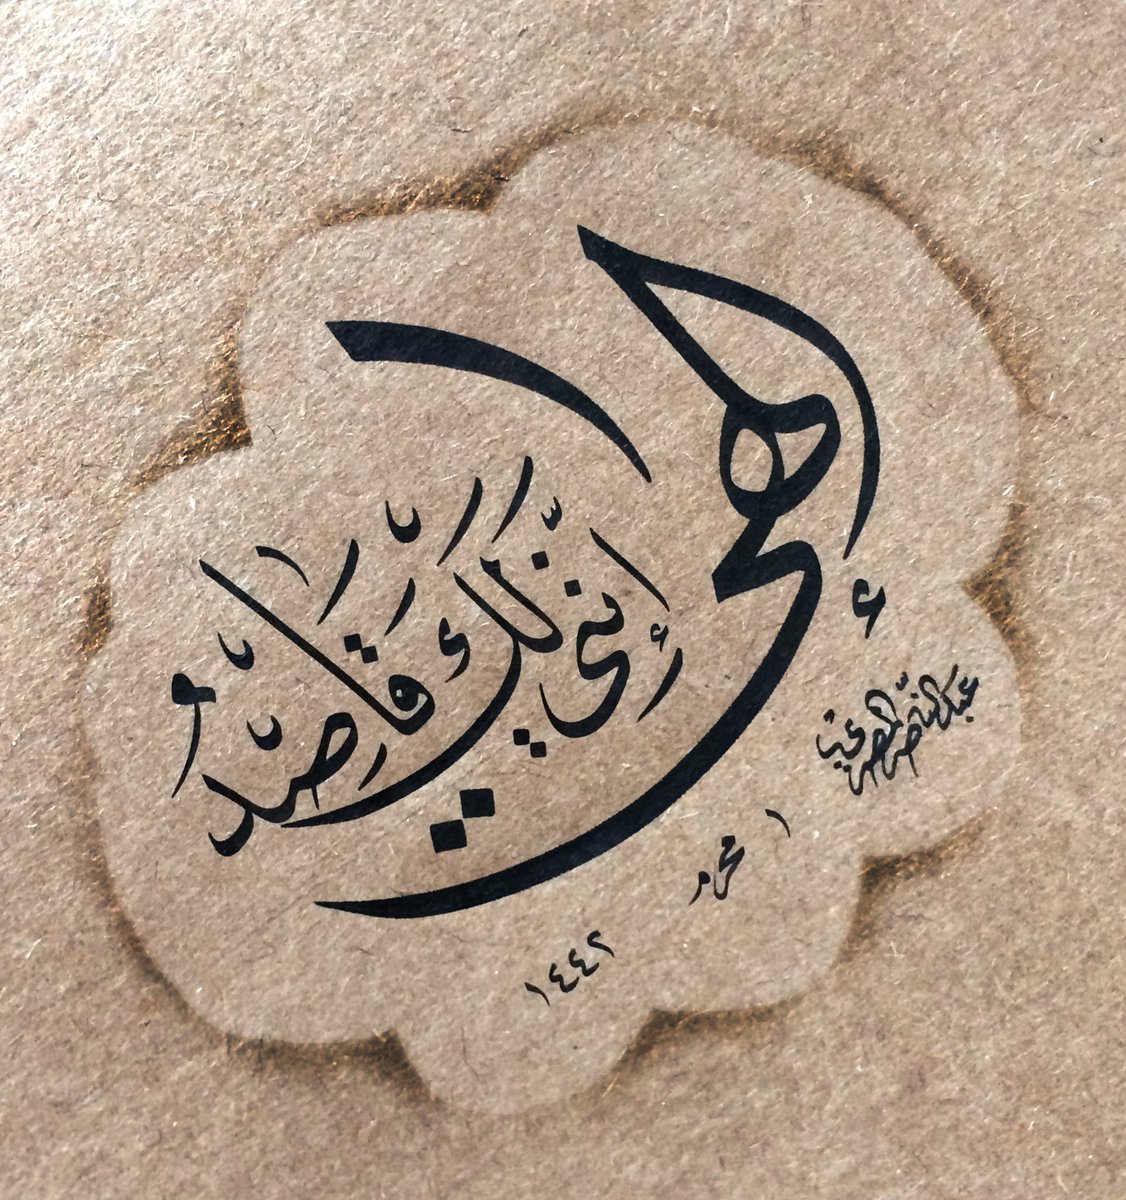 إلهي
إنّني لك قاصد
عبدالناصر المصري
١ محرم
١٤٤٢